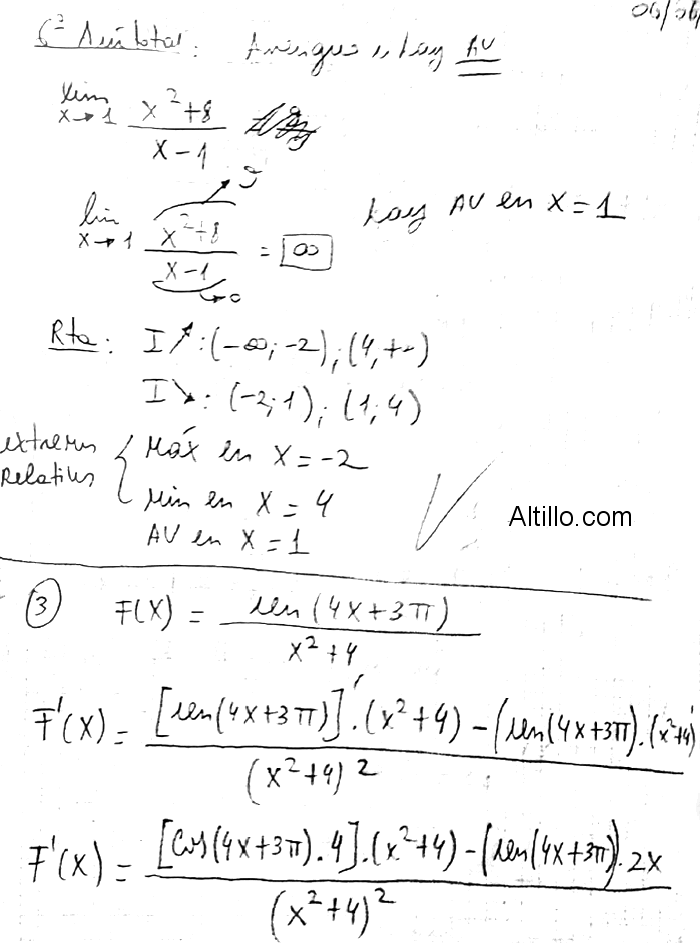 06/06
¿? Asíntotas: Averiguo si hay AV
lim x→1 x²+8 / x-1
lim x→1 x²+8 / x-1 = ∞ hay AV en x=1
→ 9
→ 0
Rta: I↗: (-∞; -2); (4, +∞)
I↘: (-2; 1); (1; 4)
extremos Relativos { Máx en x=-2
Min en x=4
AV en x=1
Altillo.com
③ F(x) = sen(4x+3π) / x²+4
F'(x) = [sen(4x+3π)]'.(x²+4) - (sen(4x+3π).(x²+4)' / (x²+4)²
F'(x) = [cos(4x+3π).4].(x²+4) - (sen(4x+3π)).2x / (x²+4)²